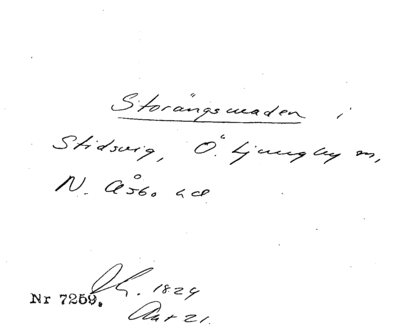 Storängsmaden i
Stidsvig, Ö. Ljungby sn,
N. Åsbo hd
Nr 7259.
1824
21.